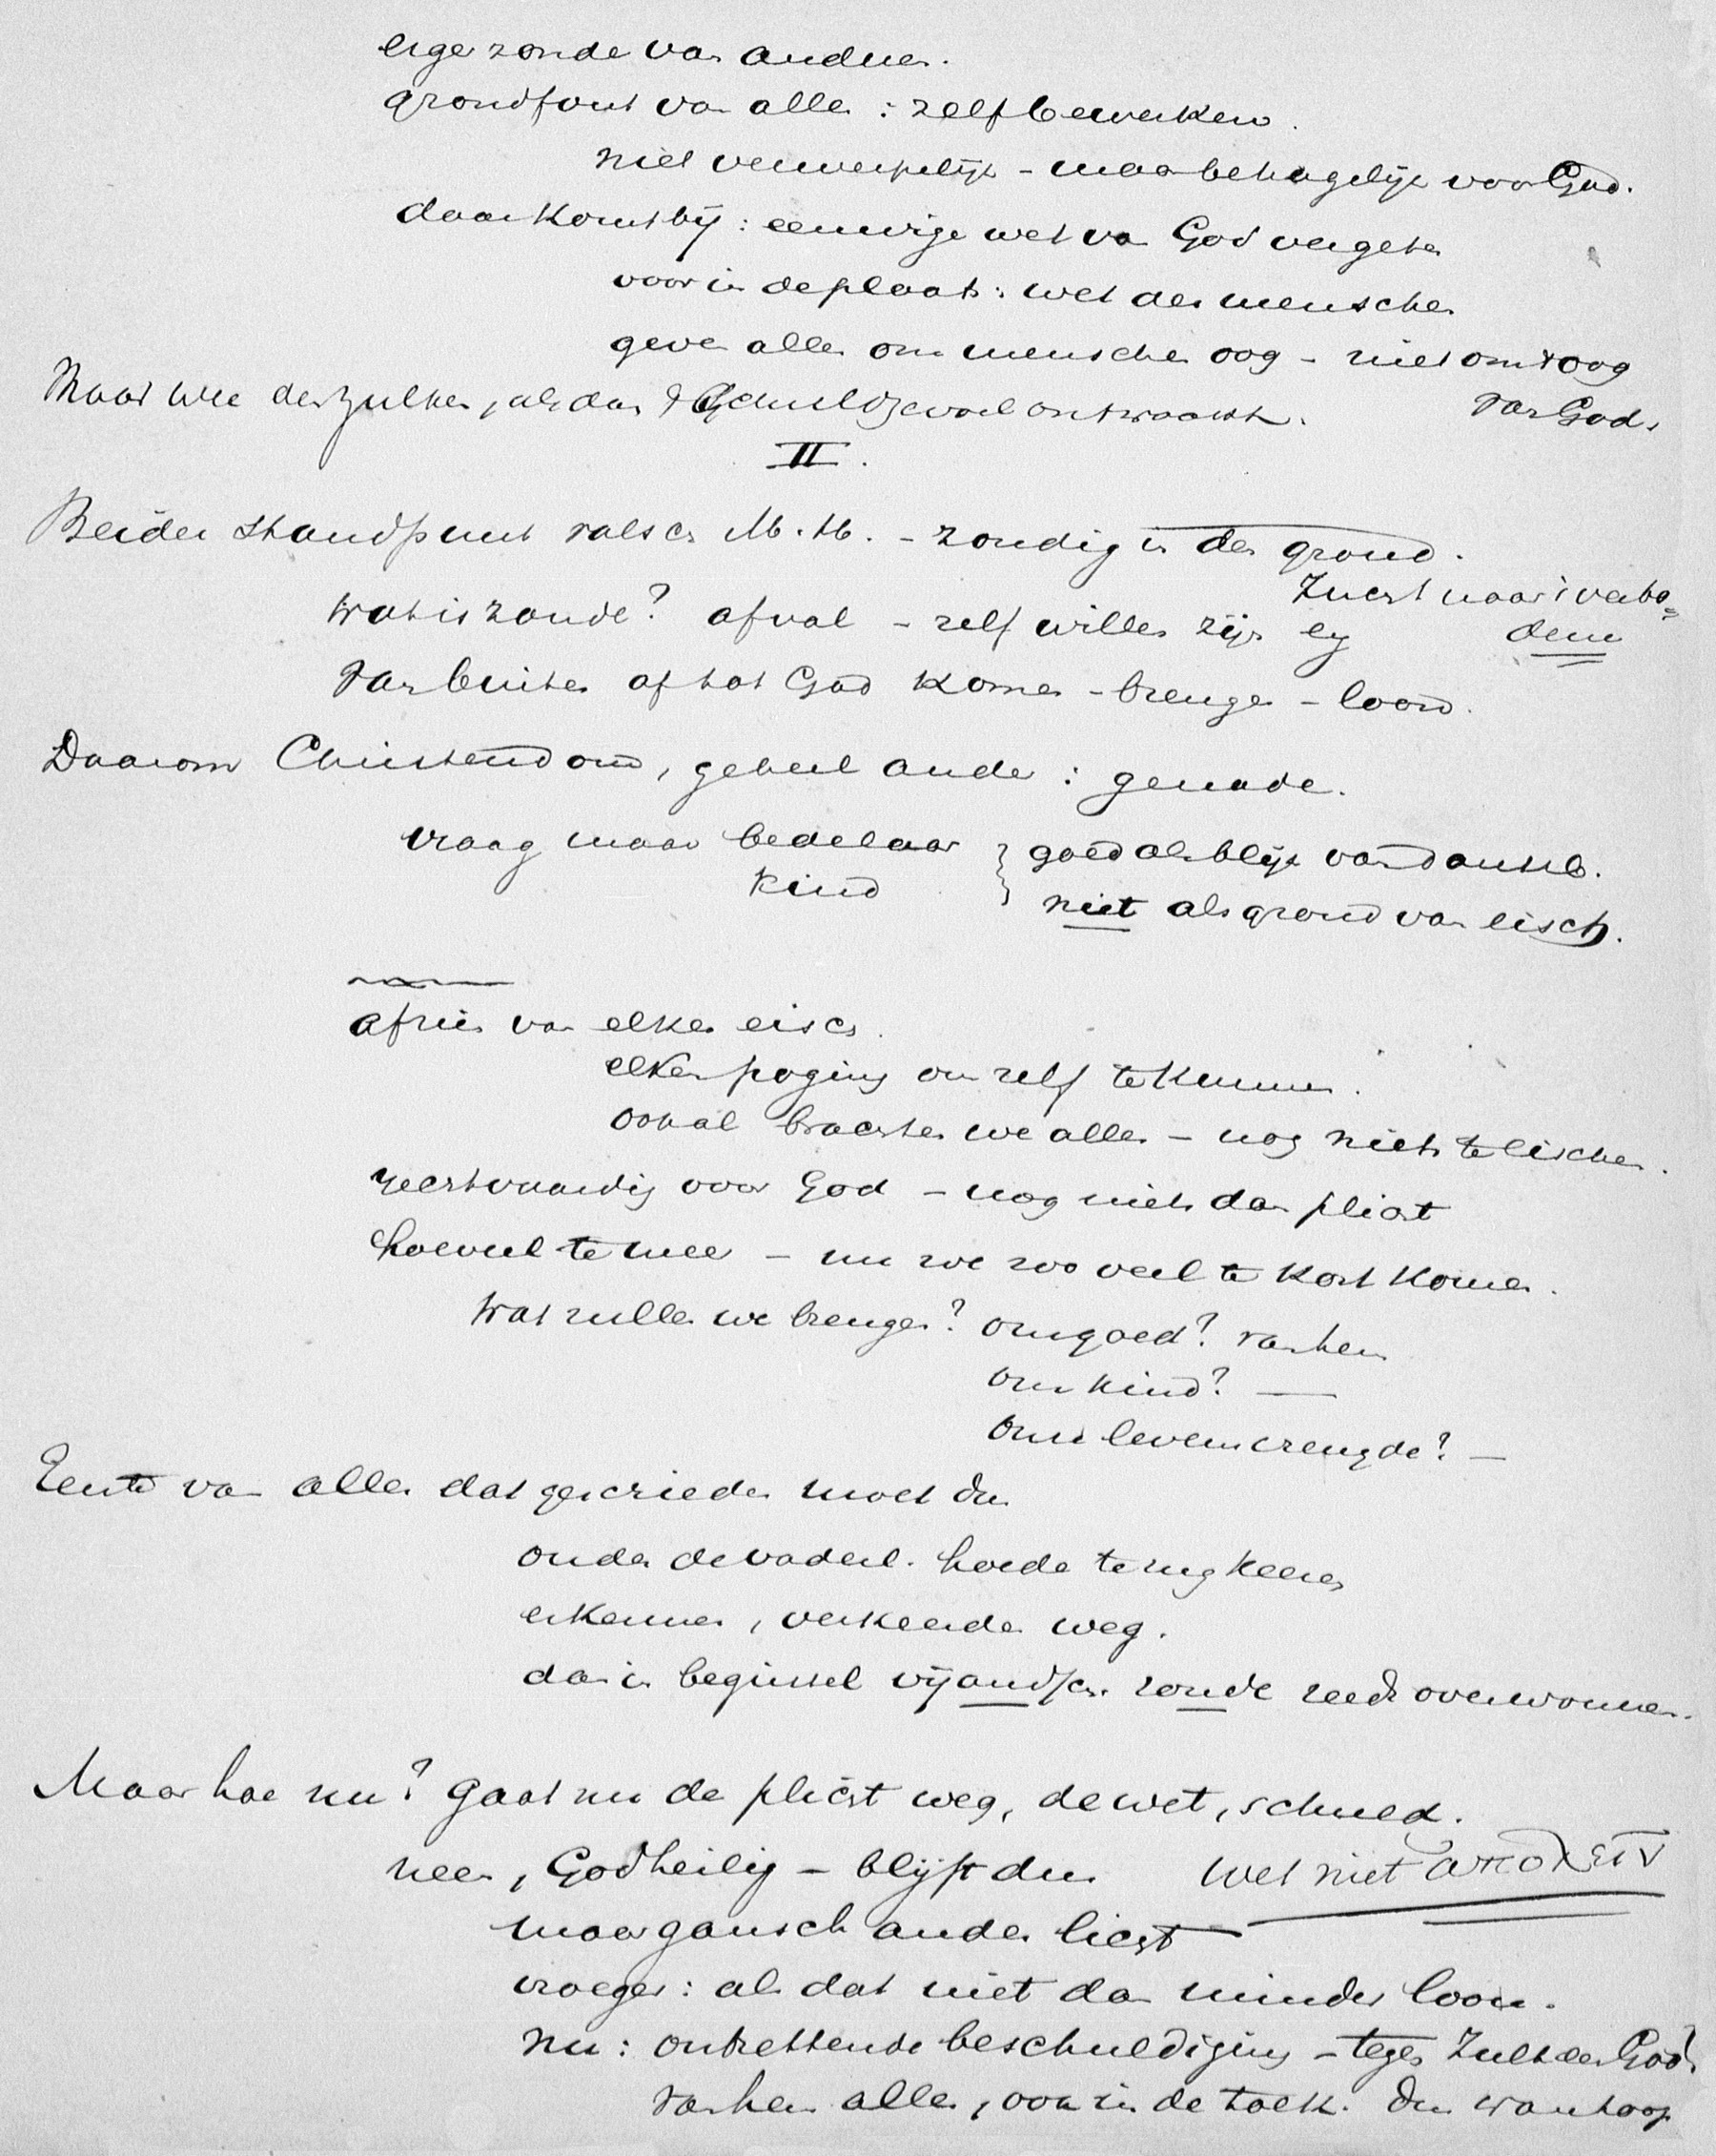 erge zonde van anderen.
grondfout van alle : zelf bewerken.
niet verwerpelijk - maar behagelijk voor God.
daar komt bij : eeuwige wet van God vergeten
voor in de plaats : wet der menschen
geven alles om menschen oog - niet om 't oog
van God.
Maar wee derzulken, als dan 't schuldgevoel ontwaakt.
II.
Beider standpunt valsch M.H. - zondig in den grond.
wat is zonde? afval - zelf willen zijn
Van buiten af tot God komen - brengen - loon.
Daarom Christendom, geheel anders : genade.
vraag maar bedelaar
kind
goed als blijk van dankb.
niet als grond van eisch.
afzien van elken eisch.
elken poging om zelf te kunnen.
ook al brachten we alles - nog niets te eischen.
rechtvaardig voor God - nog niets dan plicht
hoeveel te meer - nu we zoo veel te kort komen.
Wat zullen we brengen? ons goed? van hem
ons kind? —
onze levensvreugde? —
Eerste van alles dat geschieden moet dus
onder de vaderl. hoede terugkeeren
erkennen, verkeerde weg.
dan in beginsel vijandsch. zonde reeds overwonnen.
Maar hoe nu? gaat nu de plicht weg, de wet, schuld.
neen, God heilig - blijft dus
wet niet
maar gansch ander licht
vroeger : als dat niet dan minder loon.
nu : ontzettende beschuldiging - tegen God
van hem alles, ook in de toek. dus wanhoop